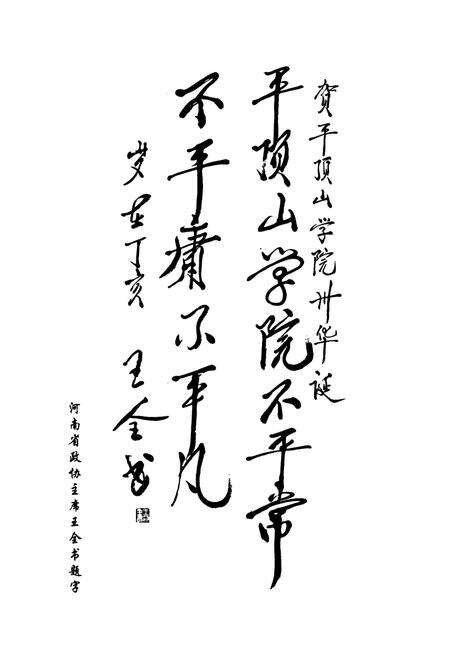 贺平顶山学院卅华诞
平顶山学院不平常
不平庸不平凡
岁在丁亥 王全书
河南省政协主席王全书题字